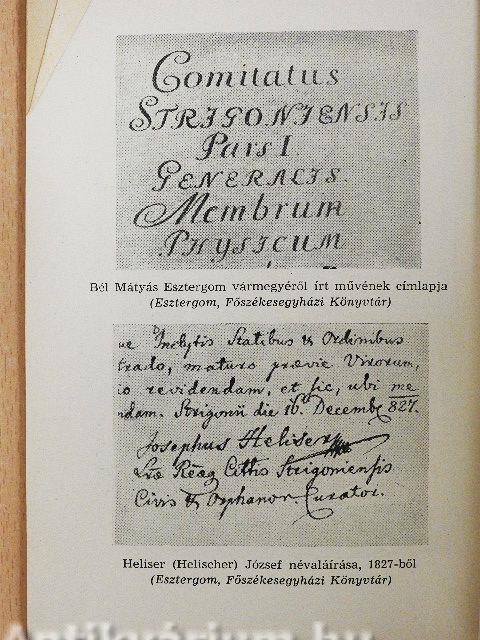 Comitatus
STRIGONIENSIS
Pars I.
GENERALIS.
Membrum
PHYSICUM
Bél Mátyás Esztergom vármegyéről írt művének címlapja
(Esztergom, Főszékesegyházi Könyvtár)
ue Inclytis Statibus & Ordinibus
trado, maturo praevie Virorum,
io revidendam, et sic, ubi me
ndam. Strigonii die 16. Decemb 827.
Josephus Heliser
Regg Cittis Strigoniensis
Civis & Orphanor. Curator.
Heliser (Helischer) József névaláírása, 1827-ből
(Esztergom, Főszékesegyházi Könyvtár)
Antikvárium.hu